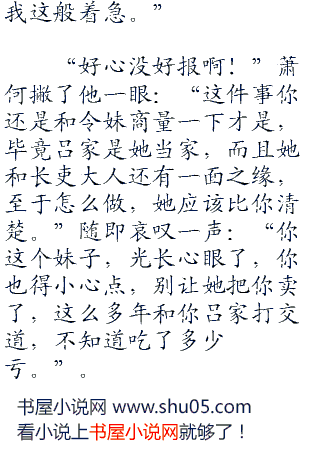 我这般着急。”
“好心没好报啊！”萧
何撇了他一眼：“这件事你
还是和令妹商量一下才是，
毕竟吕家是她当家，而且她
和长吏大人还有一面之缘，
至于怎么做，她应该比你清
楚。”随即哀叹一声：“你
这个妹子，光长心眼了，你
也得小心点，别让她把你卖
了，这么多年和你吕家打交
道，不知道吃了多少
亏。”。
书屋小说网 www.shu05.com
看小说上书屋小说网就够了！